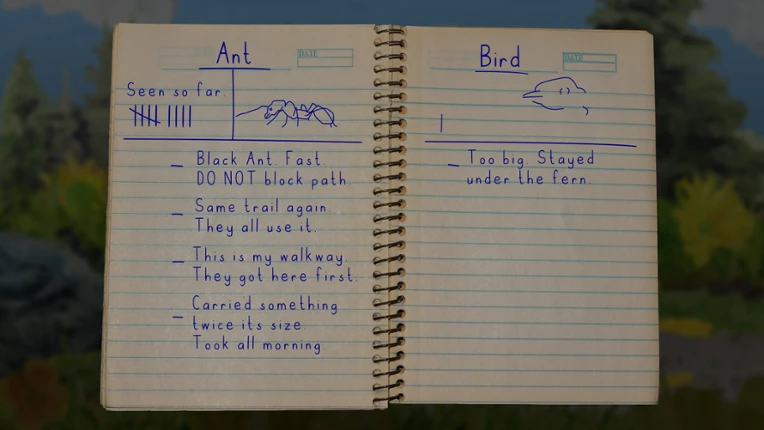 Ant
DATE
Seen so far.
Black Ant. Fast.
DO NOT block path
Same trail again.
They all use it.
This is my walkway.
They got here first.
Carried something
twice its size.
Took all morning
Bird
DATE
Too big. Stayed
under the fern.